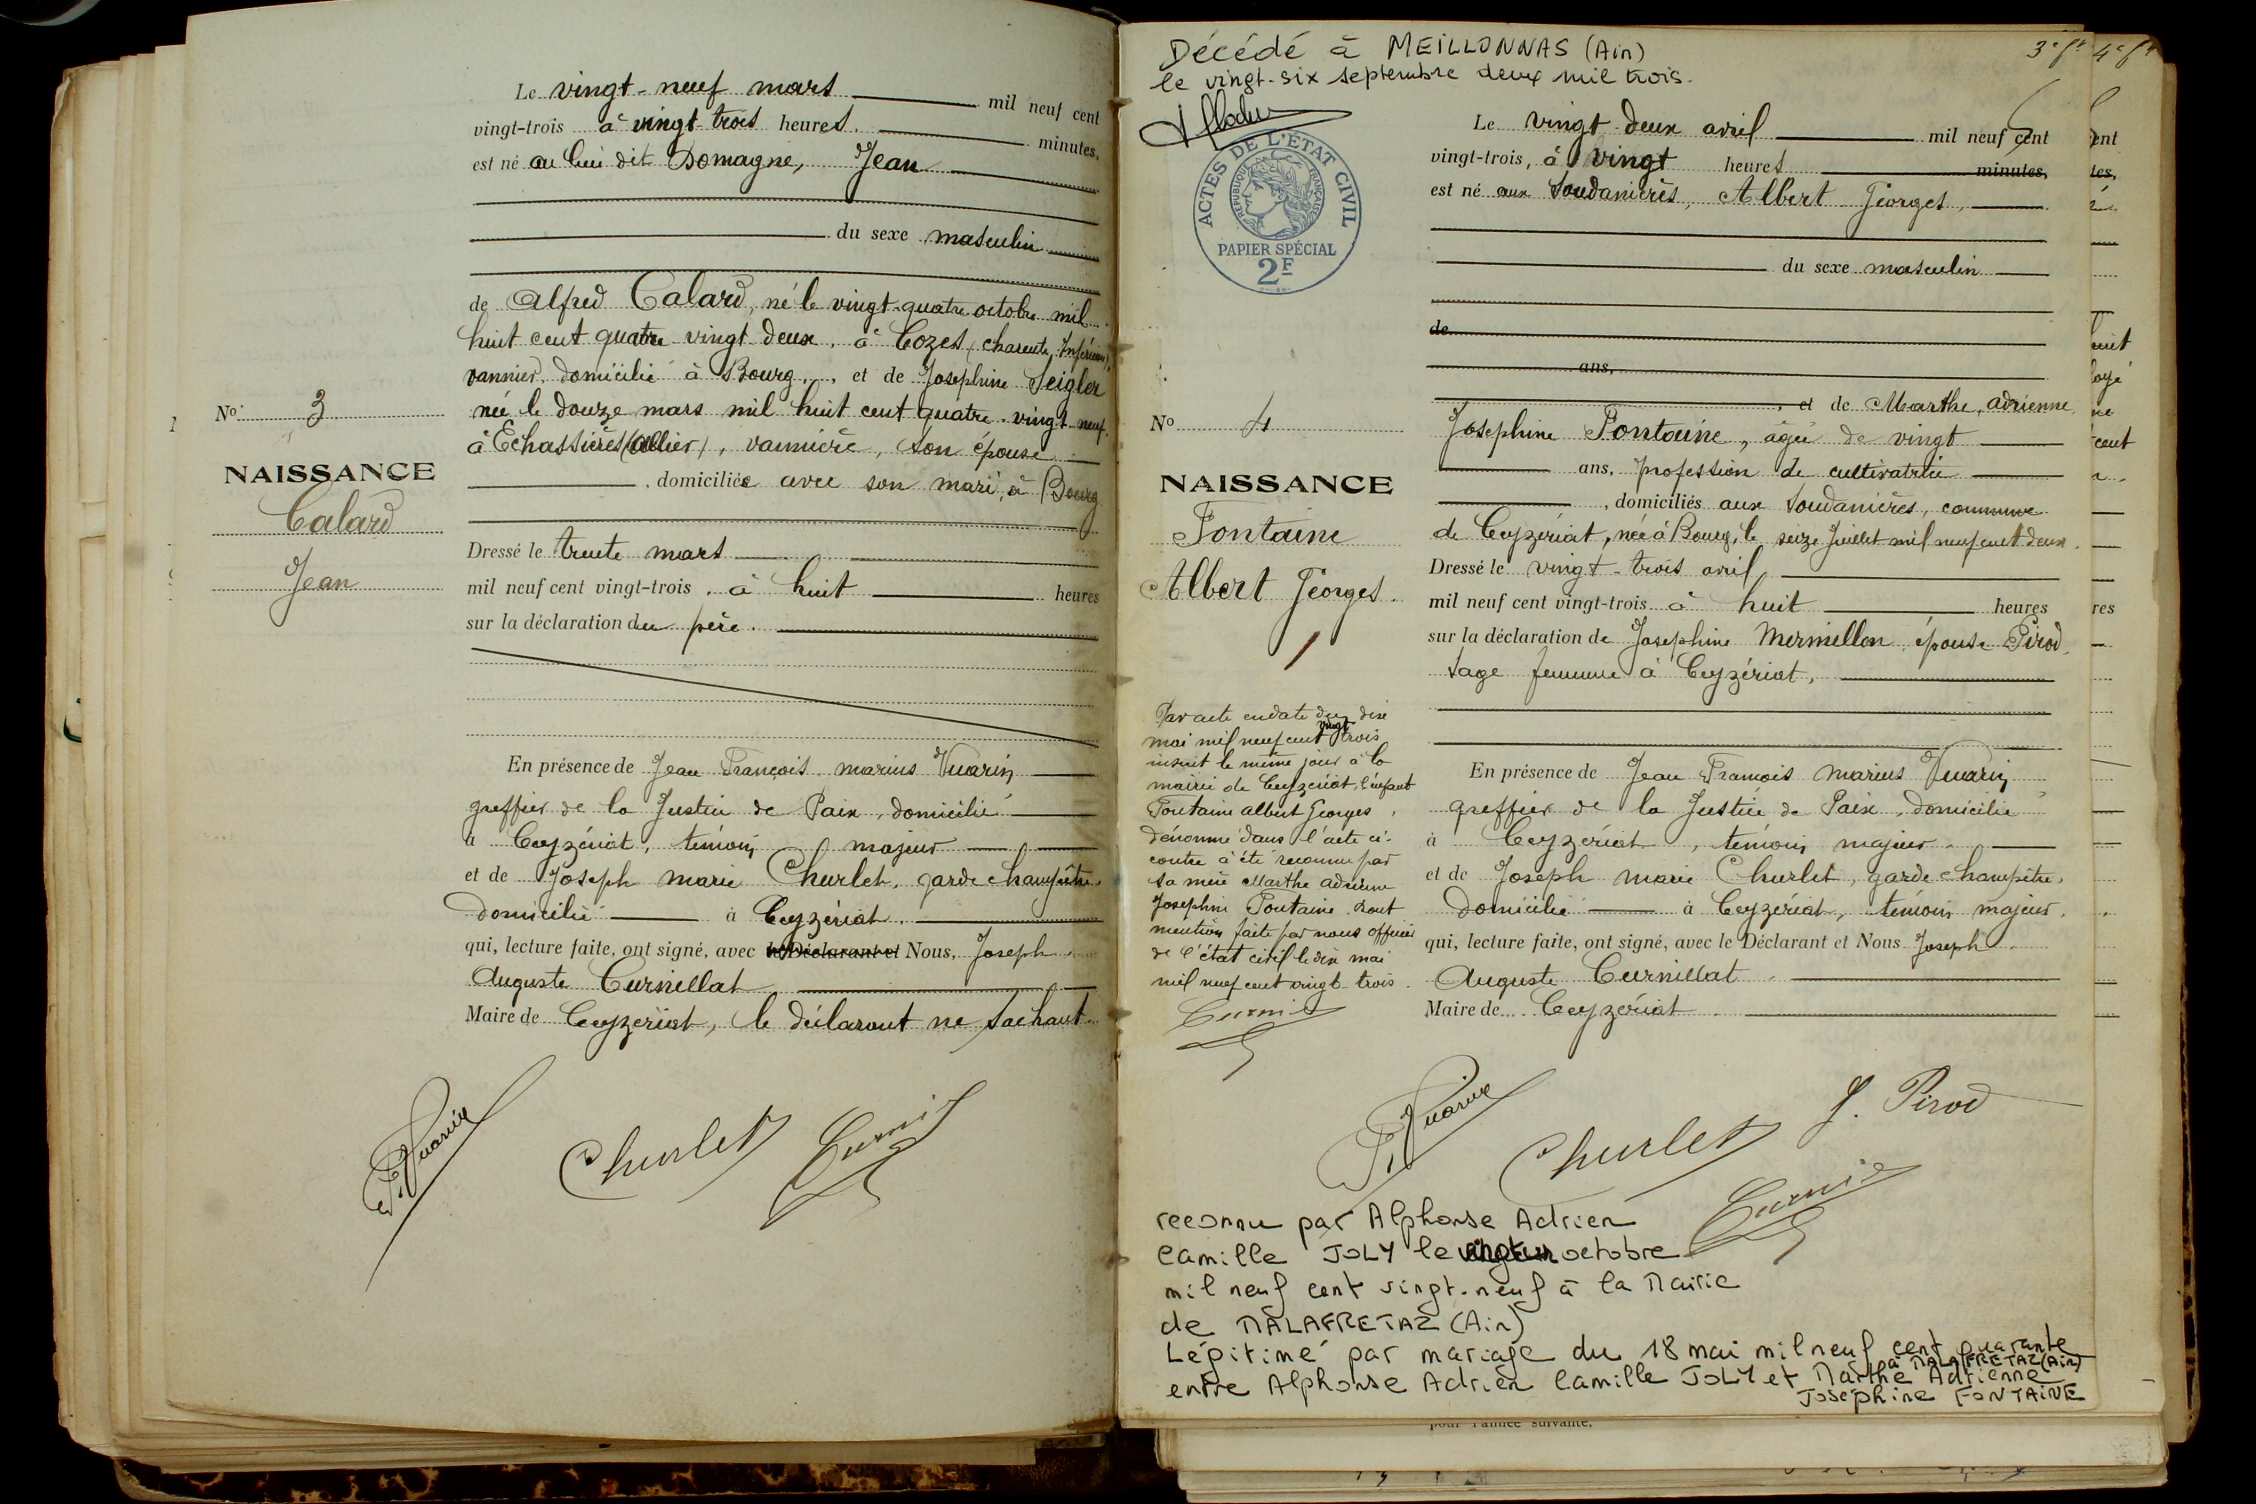 Le vingt-neuf mars mil neuf cent
vingt-trois à vingt-trois heures. minutes,
est né au lieu dit Domagne, Jean
du sexe masculin
de Alfred Calard, né le vingt-quatre octobre mil
huit cent quatre vingt deux, à Cozes (Charente Inférieure),
vannier, domicilié à Bourg, et de Josephine Seigler
née le douze mars mil huit cent quatre-vingt neuf
à Echassières (Allier), vannière, son épouse
, domiciliée avec son mari, à Bourg
Dressé le trente mars
mil neuf cent vingt-trois, à huit heures
sur la déclaration du père.
En présence de Jean François marius Vuarin
greffier de la Justice de Paix, domicilié
à Ceyzériat, témoin majeur
et de Joseph marie Churlet, garde champêtre,
domicilié à Ceyzériat.
qui, lecture faite, ont signé, avec le Déclarant et Nous, Joseph
Auguste Curnillat
Maire de Ceyzeriat, le déclarant ne sachant
Vuarin
Churlet
No 3
NAISSANCE
Calard
Jean
Décédé à MEILLONNAS (Ain)
le vingt-six septembre deux mil trois.
ACTES DE L'ÉTAT CIVIL
RÉPUBLIQUE FRANÇAISE
PAPIER SPÉCIAL
2F
3e ft 4e ft
Le vingt-deux avril mil neuf cent
vingt-trois, à vingt heures minutes,
est né aux Soudanières, Albert Georges,
du sexe masculin
de
ans,
, et de Marthe, adrienne
Josephine Fontaine, âgée de vingt
ans, profession de cultivatrice
, domiciliés aux Soudanières, commune
de Ceyzériat, née à Bourg, le seize Juillet mil neuf cent deux.
Dressé le vingt-trois avril
mil neuf cent vingt-trois à huit heures
sur la déclaration de Josephine Mermillon épouse Pirod,
sage femme à Ceyzériat,
En présence de Jean François marius Vuarin
greffier de la Justice de Paix, domicilié
à Ceyzériat, témoin majeur
et de Joseph marie Churlet, garde champêtre,
domicilié à Ceyzériat, témoin majeur,
qui, lecture faite, ont signé, avec le Déclarant et Nous Joseph
Auguste Curnillat
Maire de Ceyzériat
Vuarin
Churlet
J. Pirod
No 4
NAISSANCE
Fontaine
Albert Georges.
Par acte en date du dix
mai mil neuf cent vingt trois
inscrit le même jour à la
mairie de Ceyzériat, l'enfant
Fontaine albert Georges,
dénommé dans l'acte ci-
contre à été reconnu par
sa mère Marthe adrienne
Josephine Fontaine. Dont
mention faite par nous officier
de l'état civil le dix mai
mil neuf cent vingt-trois.
reconnu par Alphonse Adrien
Camille JOLY le vingt un octobre
mil neuf cent vingt-neuf à la Mairie
de MALAFRETAZ (Ain)
Légitimé par mariage du 18 mai mil neuf cent quarante
à MALAFRETAZ (Ain)
entre Alphonse Adrien Camille JOLY et Marthe Adrienne
Joséphine FONTAINE
pour l'année suivante.